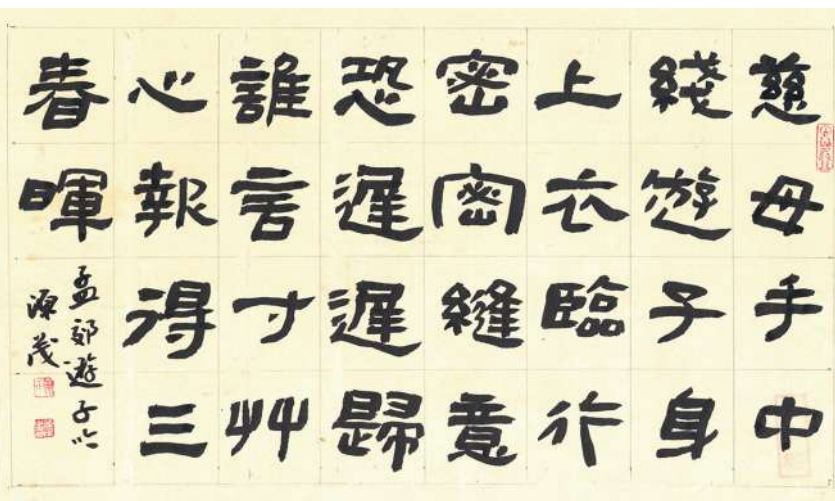 慈母手中
綫遊子身
上衣臨行
密密縫意
恐遲遲歸
誰言寸艸
心報得三
春暉
孟郊遊子吟
源茂